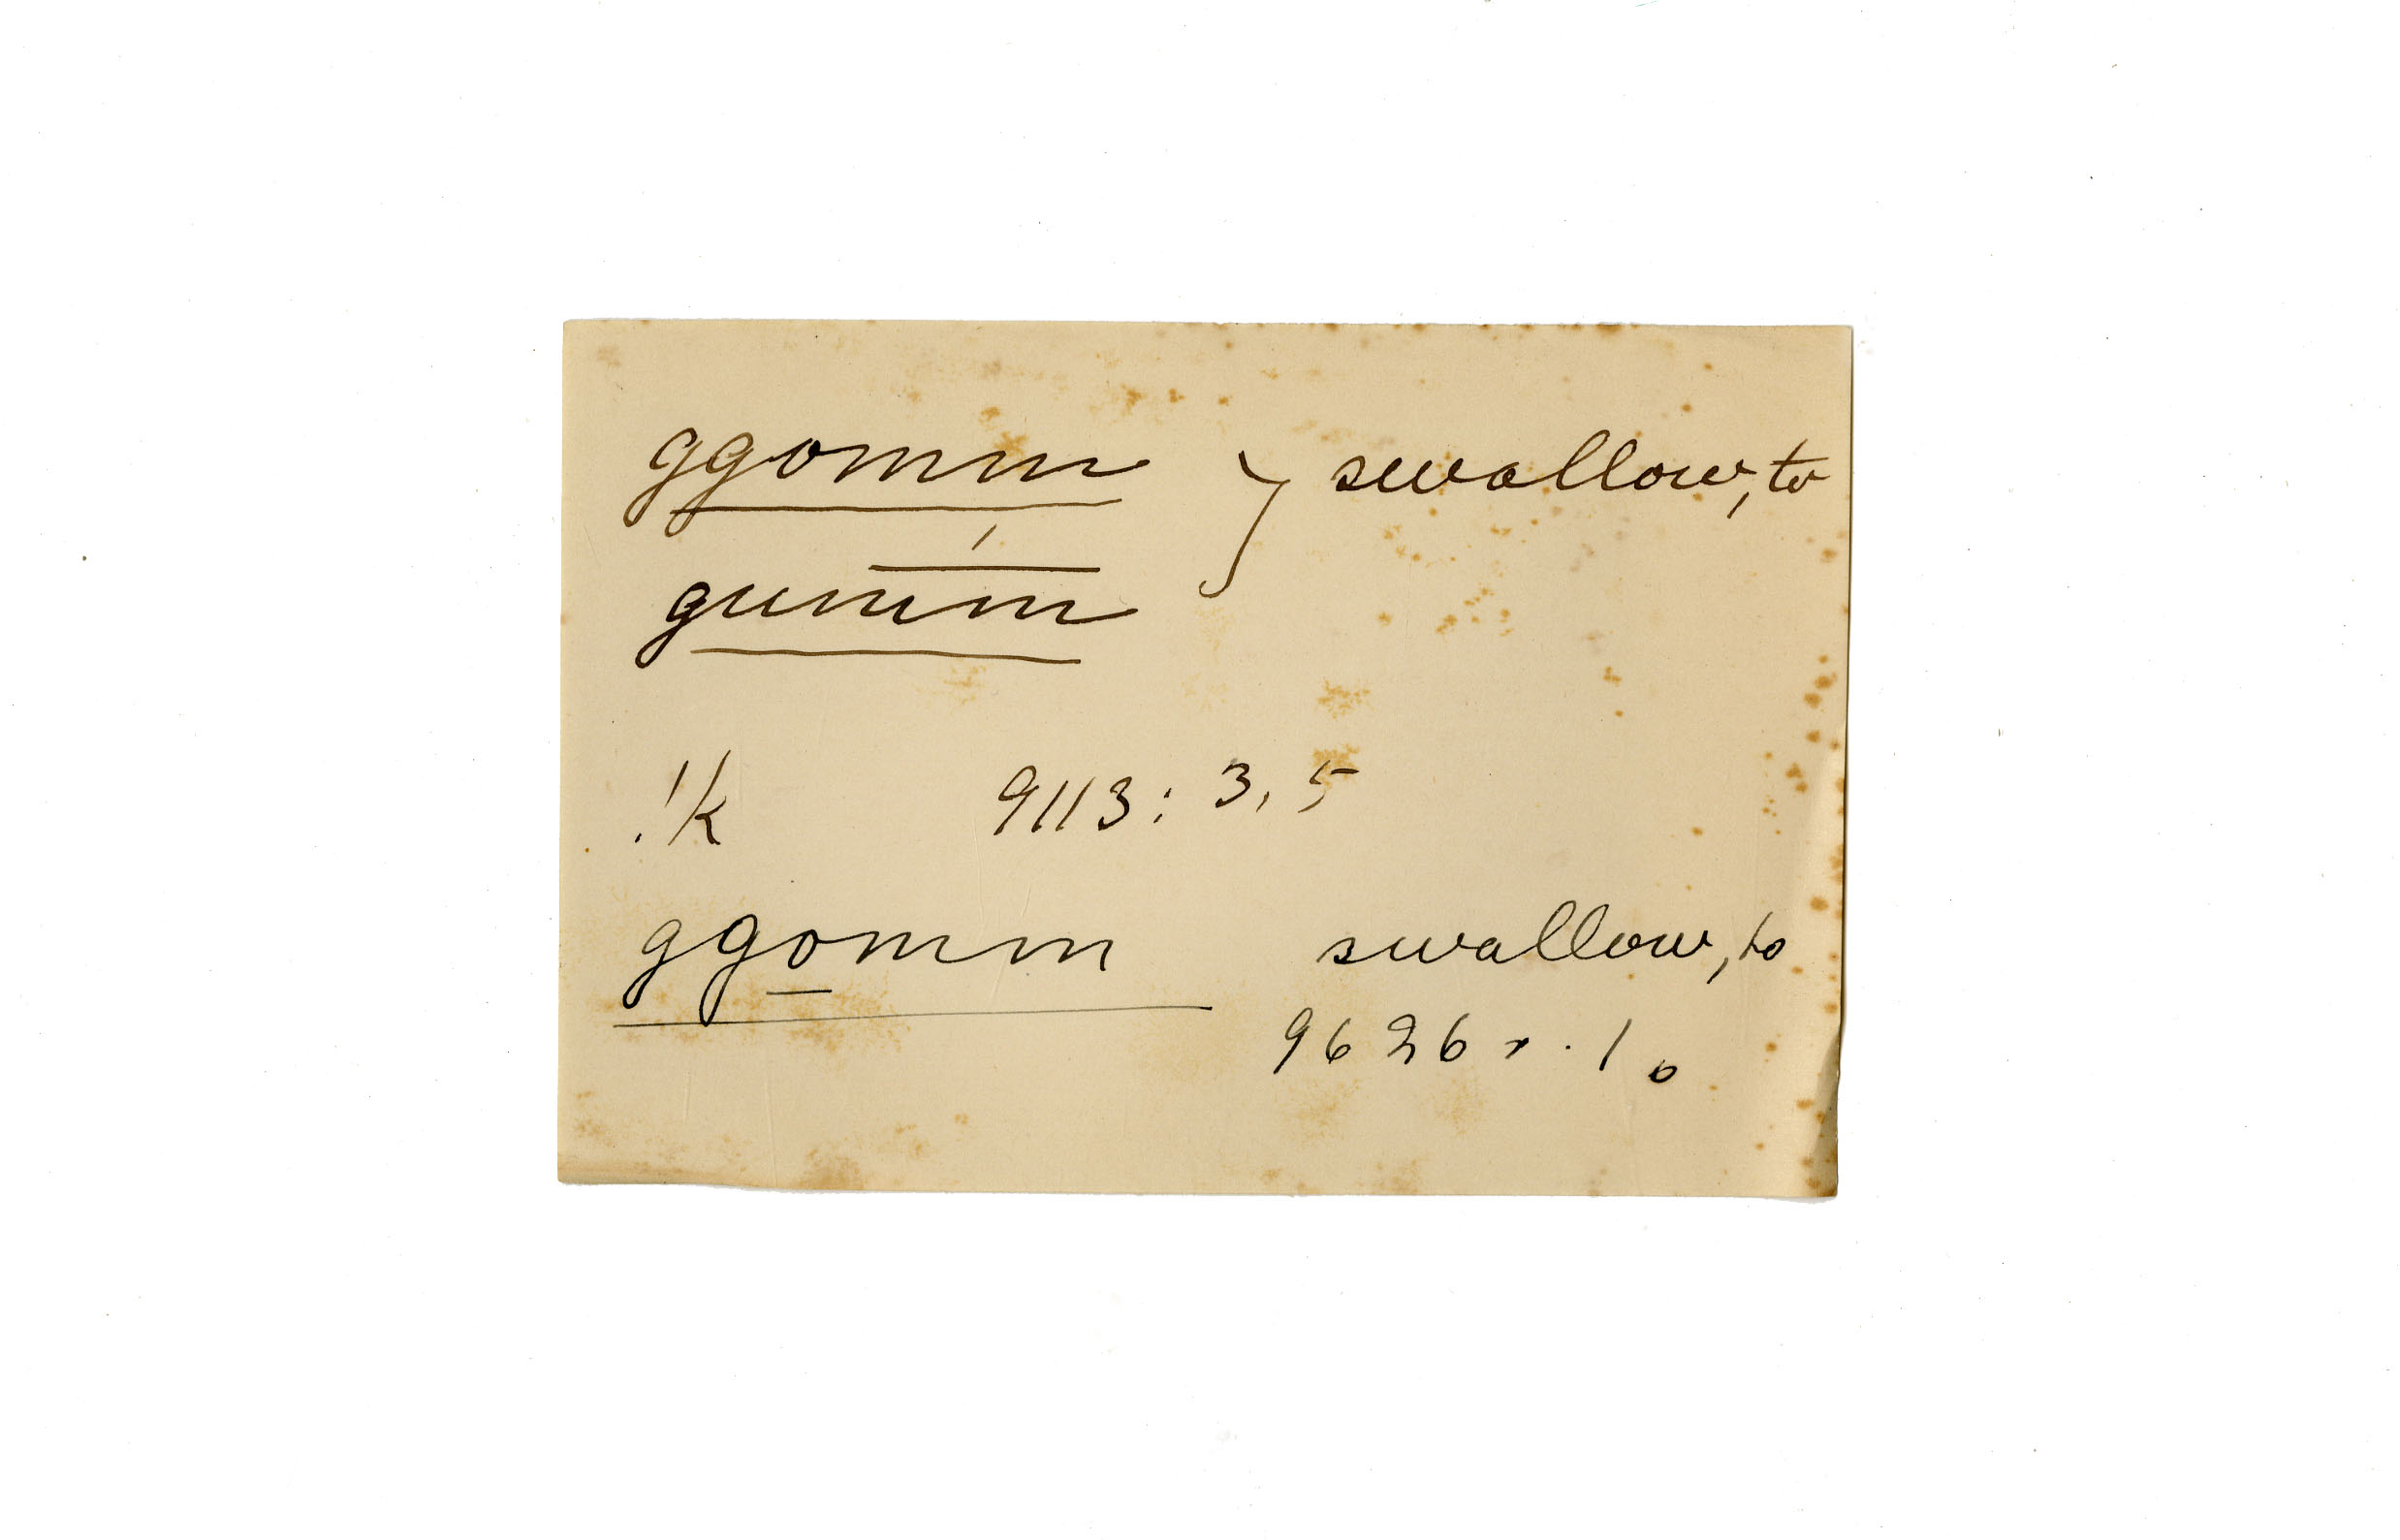 ggomm } swallow, to
gumḿm
!k 9113: 3, 5
ggo̱mm swallow, to
9626 r. 1.